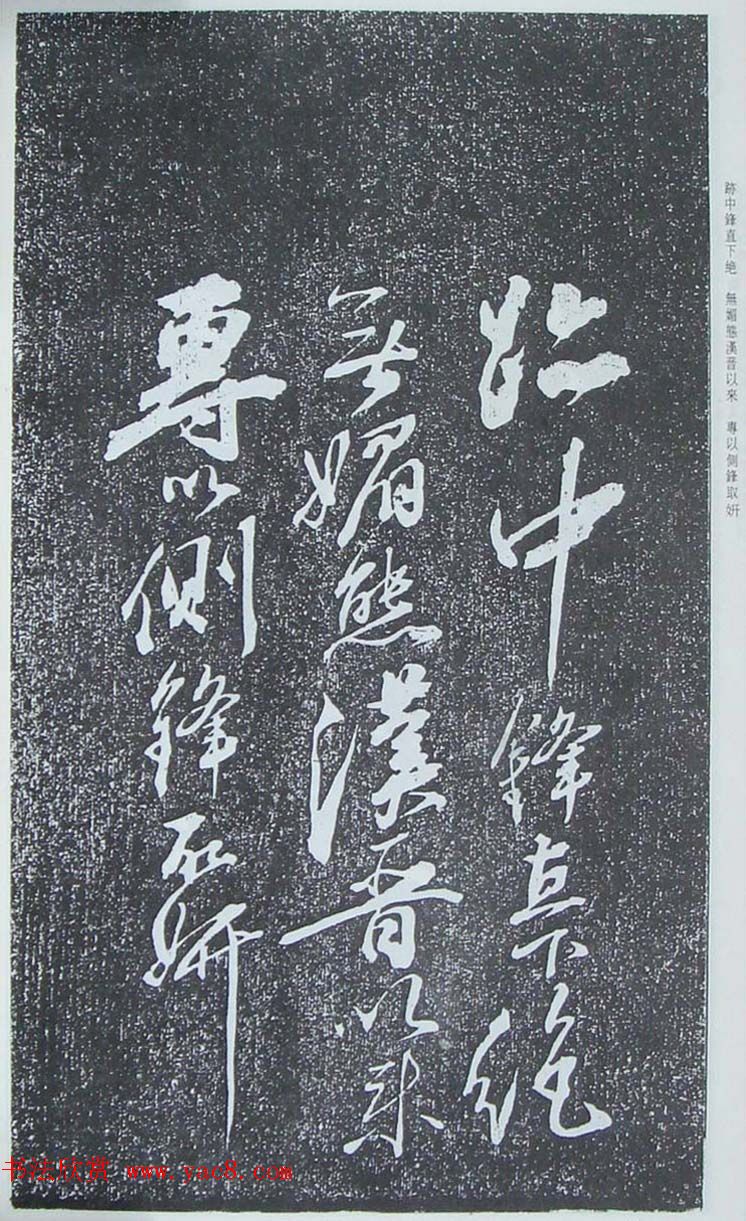 跡中鋒直下絶
無媚態漢晉以來
專以側鋒取妍
跡中鋒直下絶 無媚態漢晉以來 專以側鋒取妍
书法欣赏 www.yac8.com